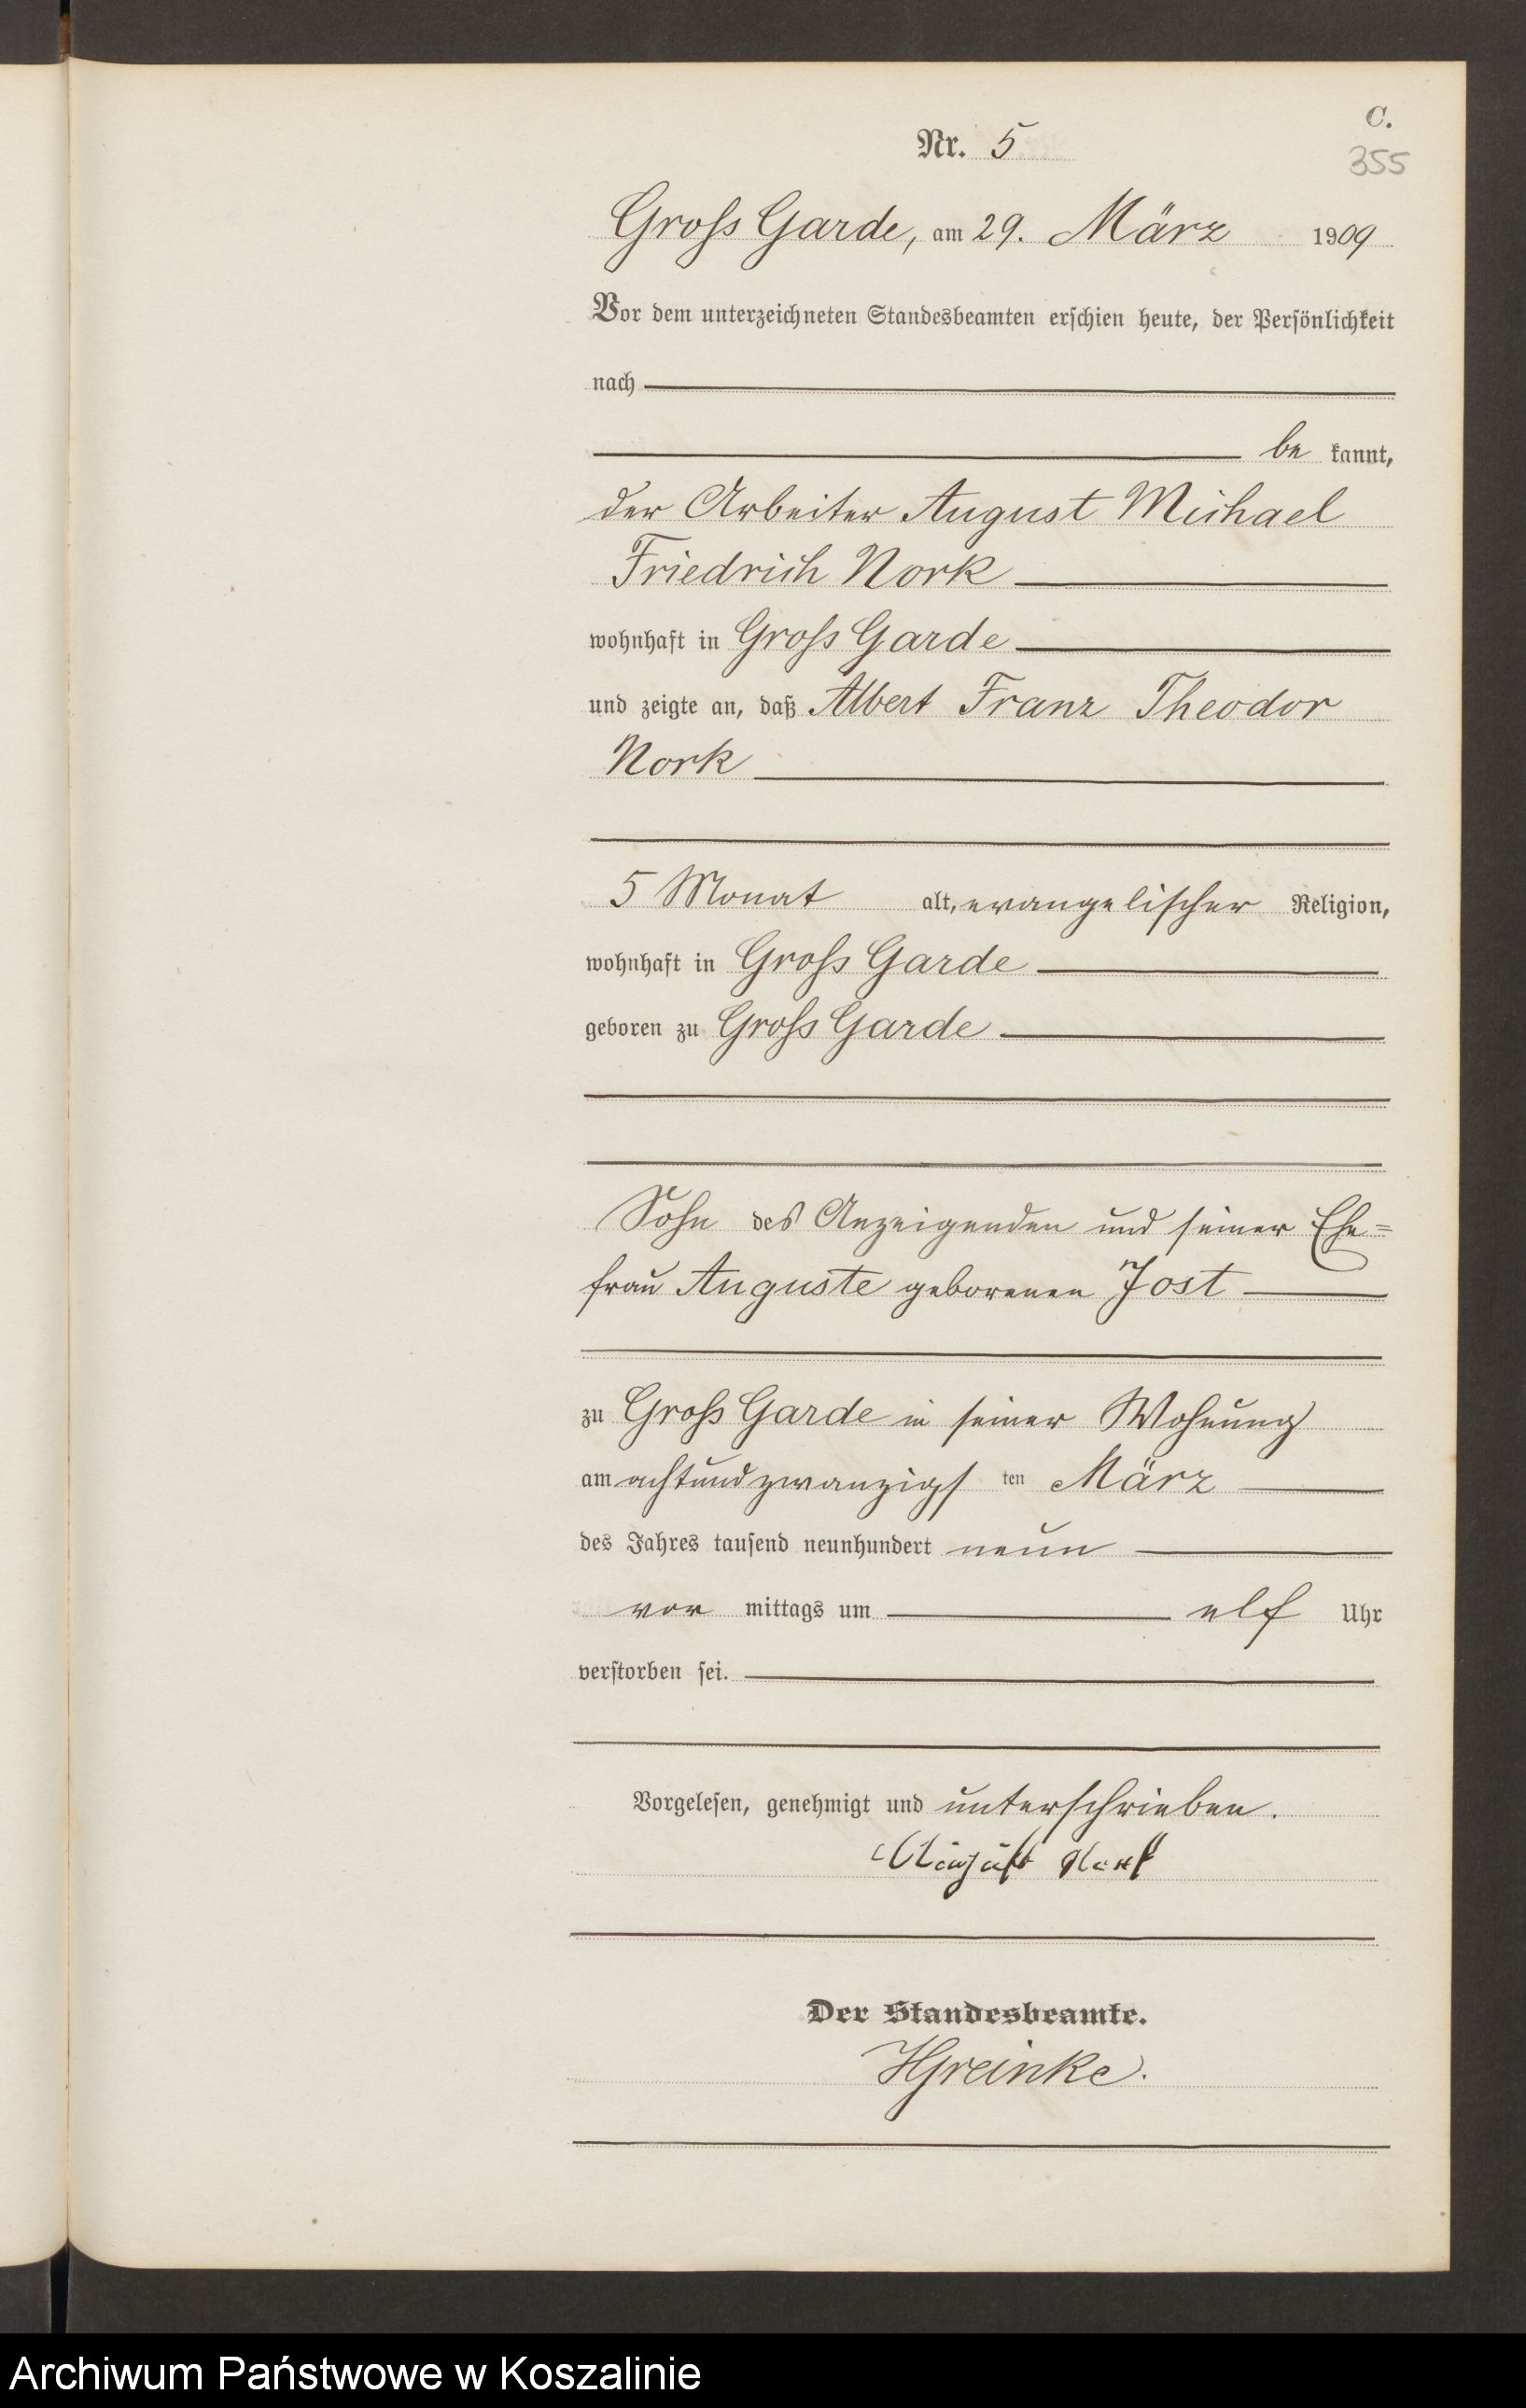 C.
Nr. 5
355
Gross Garde, am 29. März 1909
Vor dem unterzeichneten Standesbeamten erschien heute, der Persönlichkeit
nach
be kannt,
der Arbeiter August Michael
Friedrich Nork
wohnhaft in Gross Garde
und zeigte an, daß Albert Franz Theodor
Nork
5 Monat alt, evangelischer Religion,
wohnhaft in Gross Garde
geboren zu Gross Garde
Sohn des Anzeigenden und seiner Ehe=
frau Auguste geborenen Jost
zu Gross Garde in seiner Wohnung
am achtundzwanzigs ten März
des Jahres tausend neunhundert neun
vor mittags um elf Uhr
verstorben sei.
Vorgelesen, genehmigt und unterschrieben.
August Nork
Der Standesbeamte.
HGreinke.
Archiwum Państwowe w Koszalinie